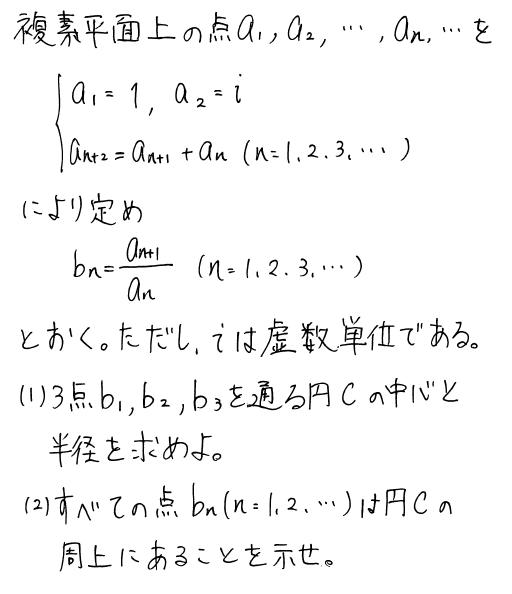 複素平面上の点a₁, a₂, …, aₙ, …を
{ a₁ = 1, a₂ = i
aₙ₊₂ = aₙ₊₁ + aₙ (n=1.2.3.…)
により定め
bₙ = aₙ₊₁/aₙ (n=1.2.3.…)
とおく。ただし、iは虚数単位である。
(1)3点b₁, b₂, b₃を通る円Cの中心と
半径を求めよ。
(2)すべての点bₙ(n=1.2.…)は円Cの
周上にあることを示せ。